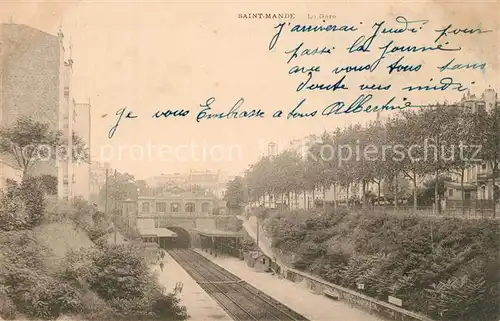 SAINT-MANDÉ La Gare
j'arriverai Jeudi pour
passé la journée
avec vous tous sans
doute vers midi
je vous Embrasse a tous Albertine
pokorny.com